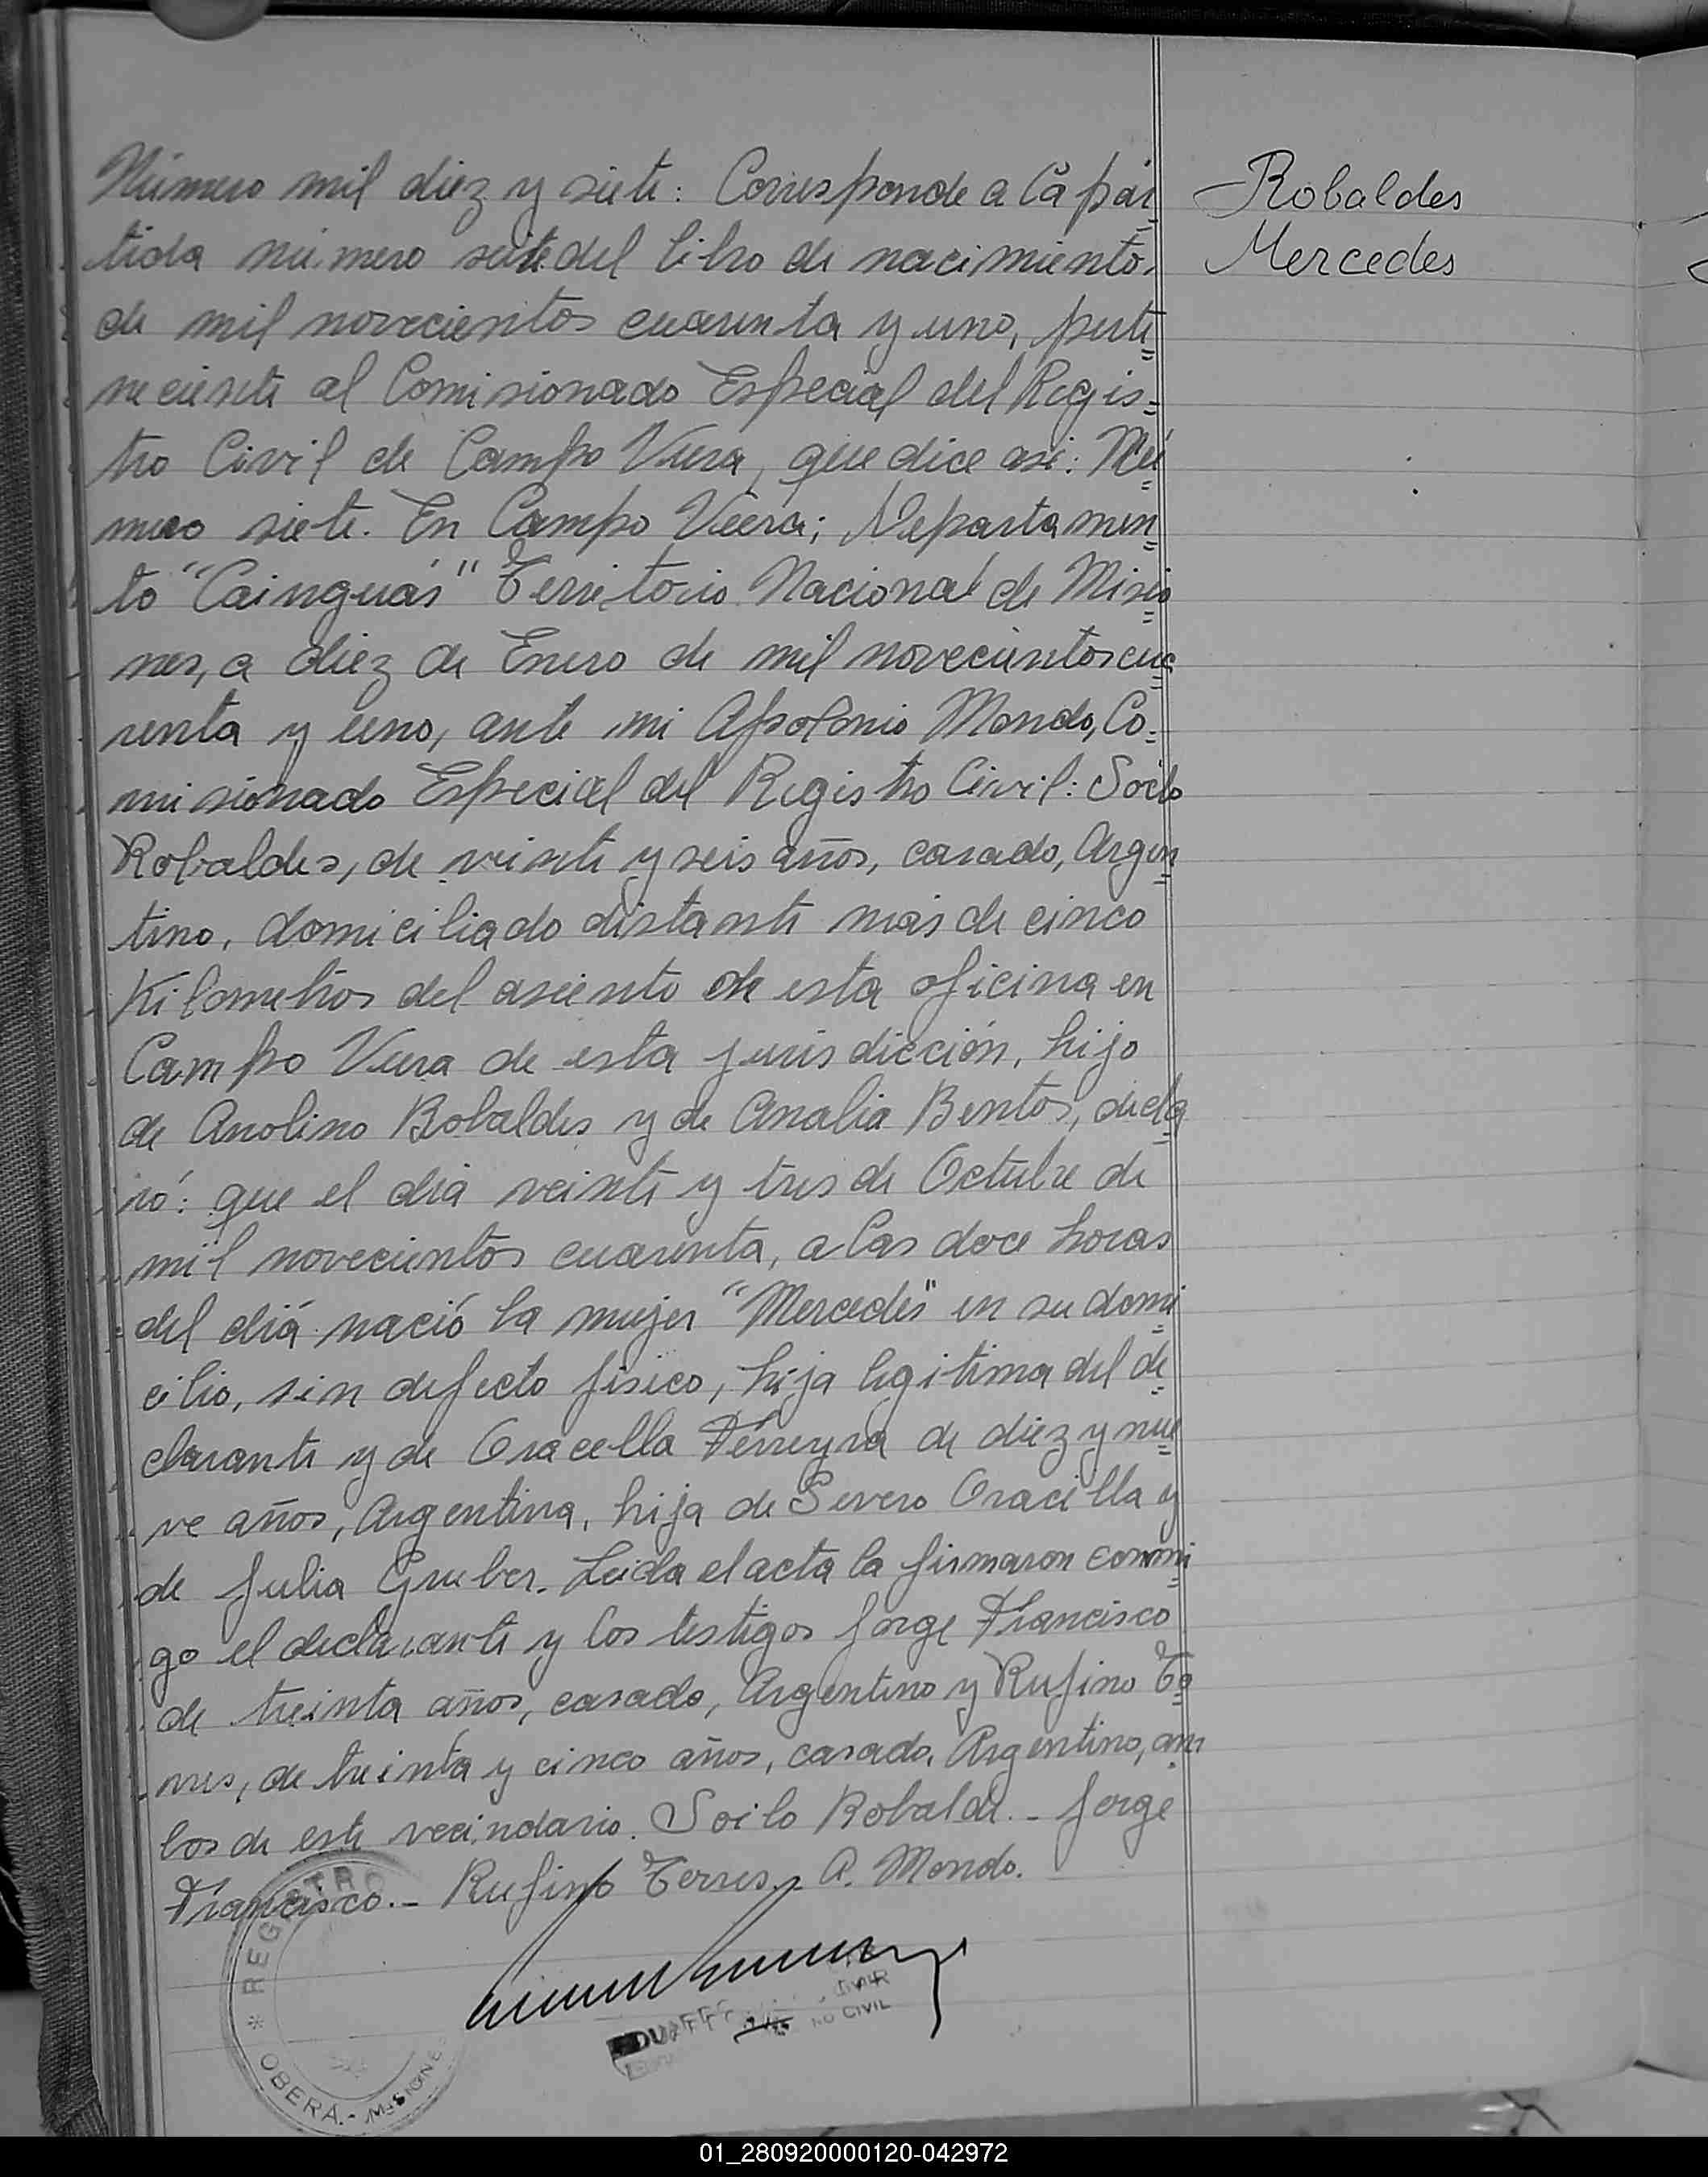 Número mil diez y siete: Corresponde a la par
tida número siete del libro de nacimientos
de mil novecientos cuarenta y uno, perte
neciente al Comisionado Especial del Regis=
tro Civil de Campo Viera, que dice asi: Nú
mero siete. En Campo Viera; Departamen
to "Cainguás" Territorio Nacional de Misio
nes, a diez de Enero de mil novecientos cua
renta y uno, ante mi Apolonio Mondo, Co=
misionado Especial del Registro Civil: Soilo
Robaldes, de veinte y seis años, casado, Argen
tino, domiciliado distante más de cinco
Kilometros del asiento de esta oficina en
Campo Viera de esta jurisdicción, hijo
de Anolino Robaldes y de Analia Bentos, decla
ró: que el dia veinte y tres de Octubre de
mil novecientos cuarenta, a las doce horas
del diá nació la mujer "Mercedes" en su domi
cilio, sin defecto fisico, hija legitima del de
clarante y de Oracella Ferreyra de diez y nue
ve años, Argentina, hija de Severo Oracella y
de Julia Gruber. Leida el acta la firmaron conmi
go el declarante y los testigos Jorge Francisco
de treinta años, casado, Argentino y Rufino To
rres, de treinta y cinco años, casado, Argentino, am
bos de este vecindario. Soilo Robalde.- Jorge
Francisco.- Rufino Torres.- A. Mondo.
Robaldes
Mercedes
REGISTRO
* OBERÁ.- MISIONES
CIVIL
01_280920000120-042972